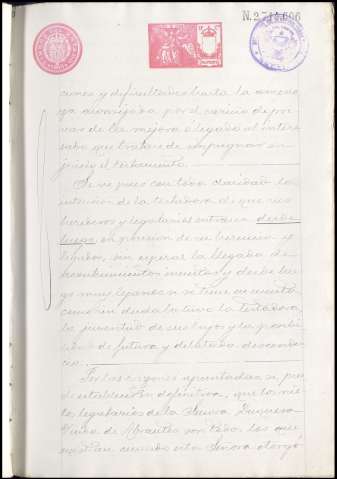 N. 2.744.606
ciones y dificultades hasta la amena
za aconsejada por el cariño de pri
var de la mejora o legado al intere
sado que tratase de impugnar en
juicio el testamento.
Se ve pues con toda claridad la
intención de la testadora de que sus
herederos y legatarios entrasen desde
luego en posesión de su herencia y
legados, sin esperar la llegada de
acontecimientos inciertos y desde lue
go muy lejanos si se tiene en cuenta
como sin duda la tuvo la testadora
la juventud de sus hijos y la posibili
dad de futura y dilatada descenden
cia.
Por las razones apuntadas se pue
de establecer en definitiva, que los nie
tos legatarios de la Excma Duquesa
Viuda de Abrantes son todos los que
existían cuando esta Señora otorgó